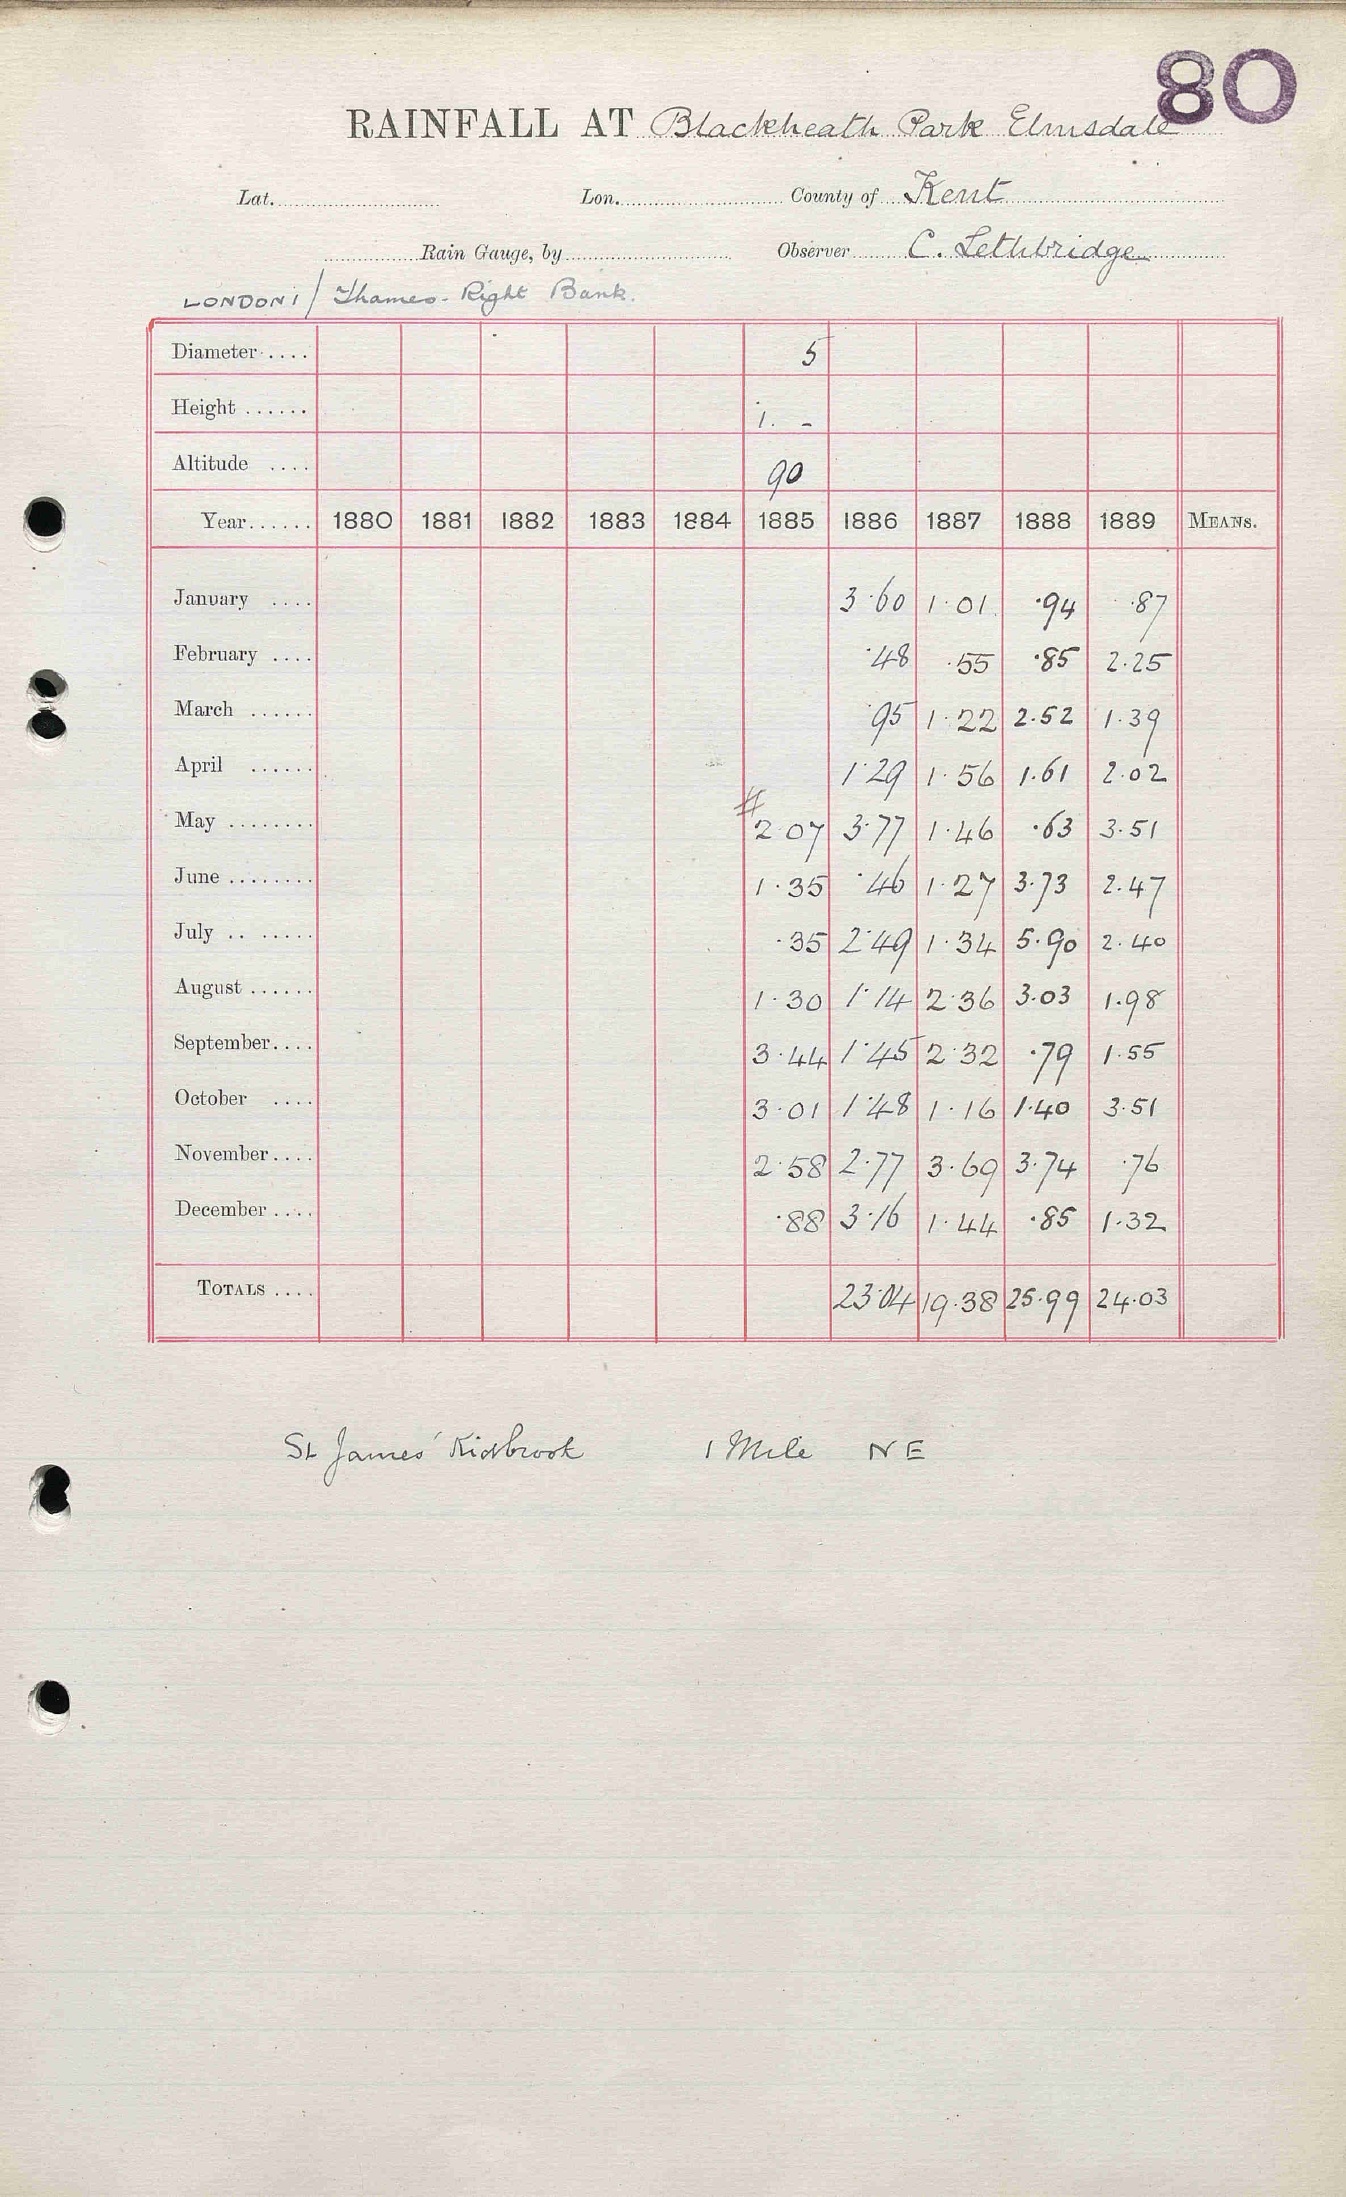 80
RAINFALL AT Blackheath Park Elmsdale
Lat. Lon. County of Kent
Rain Gauge, by Observer C. Lethbridge
LONDON 1 / Thames - Right Bank.
Diameter .... 5
Height ...... 1. -
Altitude .... 90
Year ...... 1880 1881 1882 1883 1884 1885 1886 1887 1888 1889 MEANS.
January .... 3.60 1.01 .94 .87
February .... .48 .55 .85 2.25
March ...... .95 1.22 2.52 1.39
April ...... 1.29 1.56 1.61 2.02
May ........ # 2.07 3.77 1.46 .63 3.51
June ........ 1.35 .46 1.27 3.73 2.47
July .. ..... .35 2.49 1.34 5.90 2.40
August ...... 1.30 1.14 2.36 3.03 1.98
September .... 3.44 1.45 2.32 .79 1.55
October .... 3.01 1.48 1.16 1.40 3.51
November .... 2.58 2.77 3.69 3.74 .76
December .... .88 3.16 1.44 .85 1.32
TOTALS .... 23.04 19.38 25.99 24.03
St James' Kidbrook 1 Mile NE